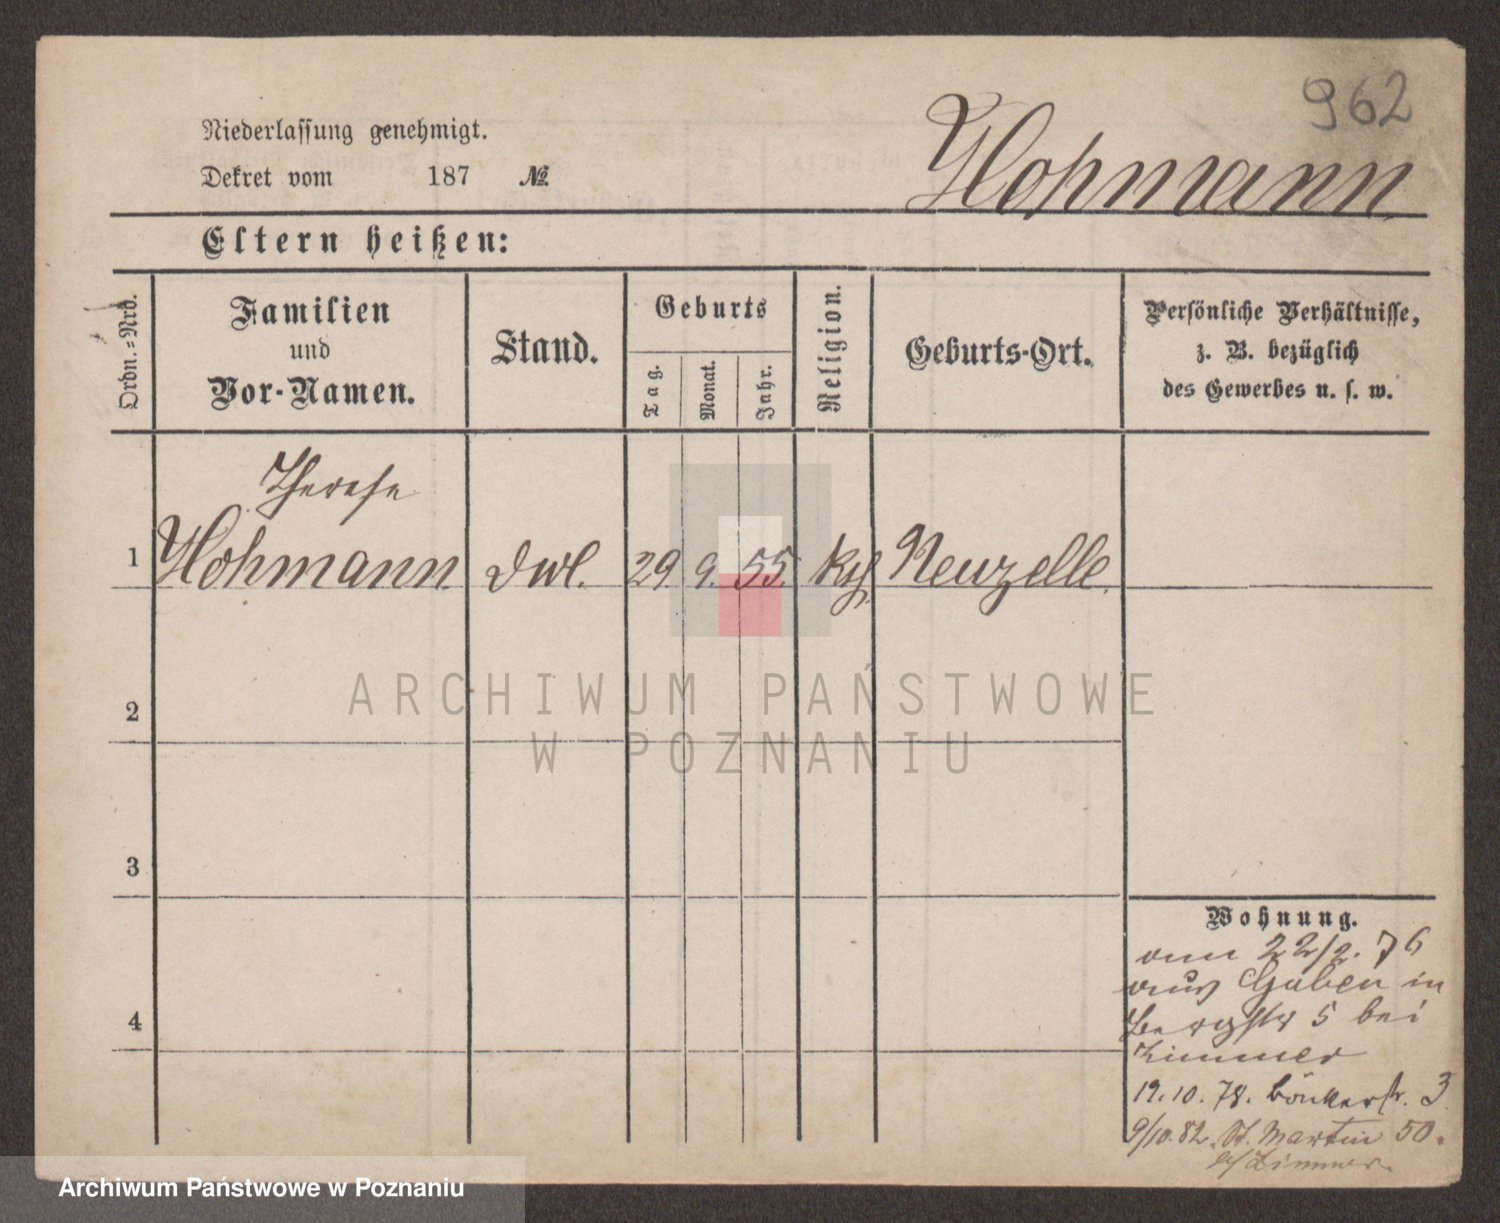 962
Niederlassung genehmigt.
Dekret vom 187 №
Hohmann
Eltern heißen:
Ordn.=Nrd.
Familien
und
Vor-Namen.
Stand.
Geburts
Tag.
Monat.
Jahr.
Religion.
Geburts-Ort.
Persönliche Verhältnisse,
z. B. bezüglich
des Gewerbes u. s. w.
Therese
1 Hohmann 29 9. 55. Neuzelle.
2
3
4
ARCHIWUM PAŃSTWOWE
W POZNANIU
Wohnung.
22/2. 76
aus Guben in
Bergstr 5 bei
Zimmer
19.10.78. Bäckerstr. 3
9/10.82. St. Martin 50.
b/Zimmer.
Archiwum Państwowe w Poznaniu